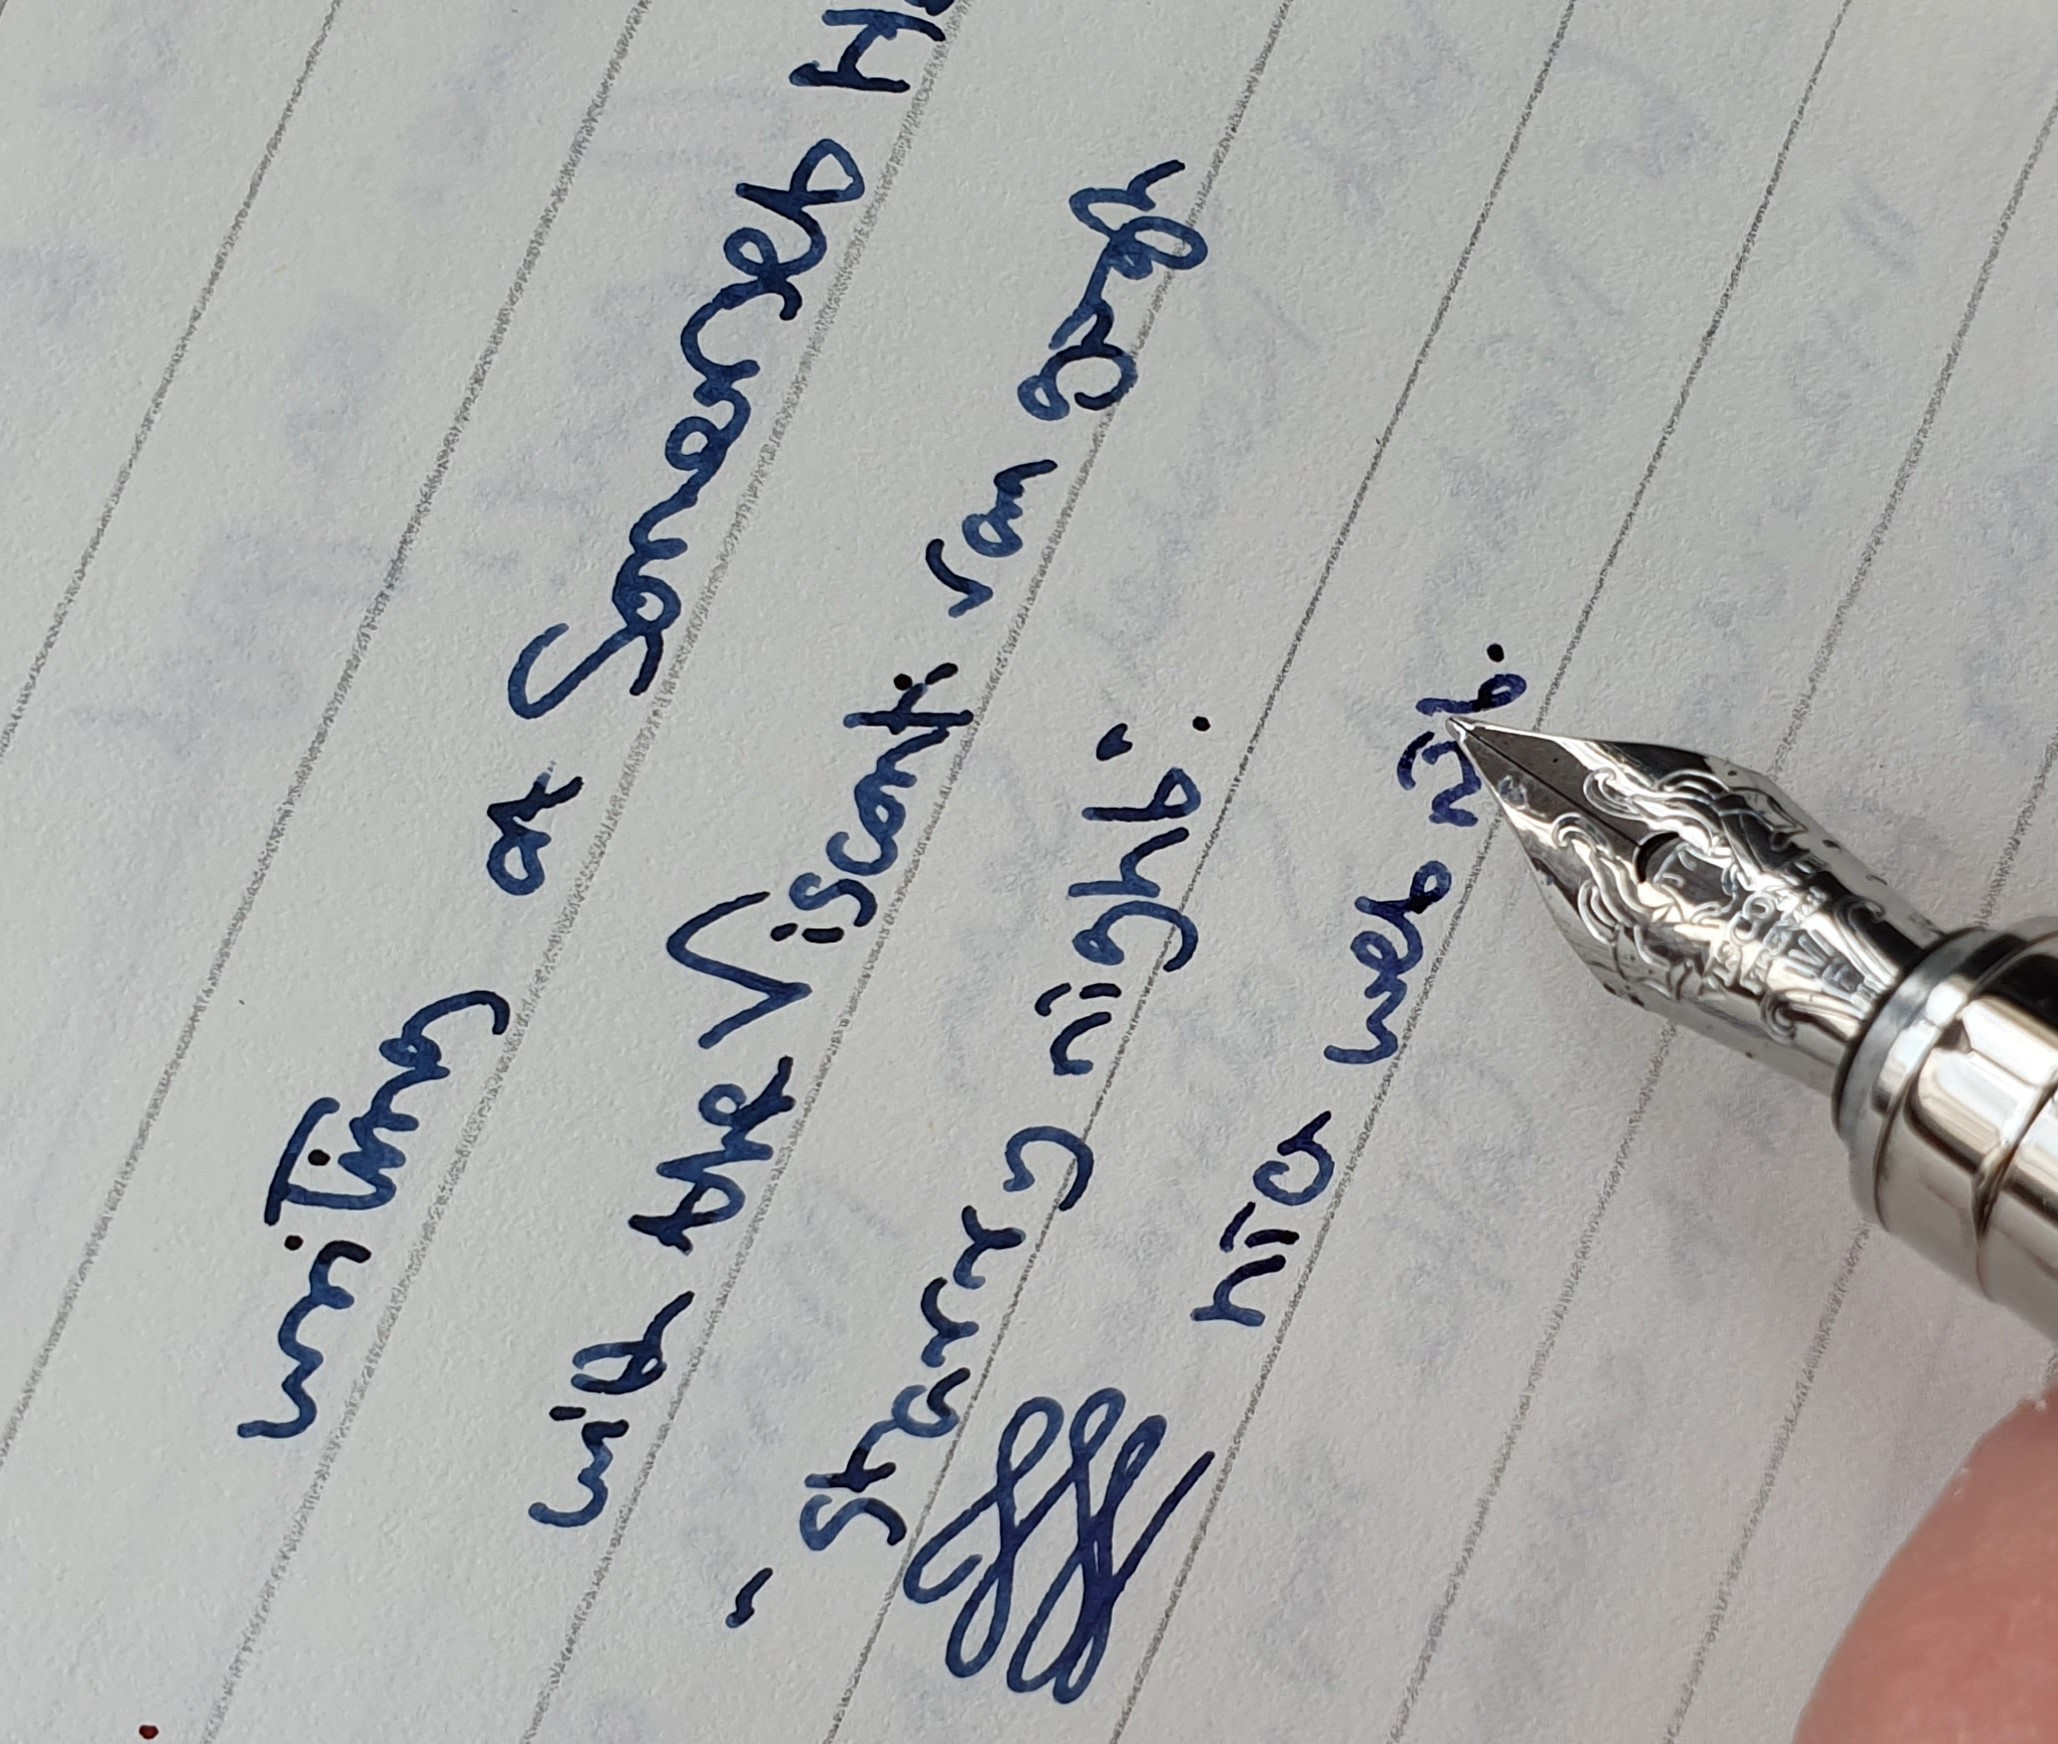 writing at Somerset
with the Visconti van gogh
"Starry night".
wet nib.